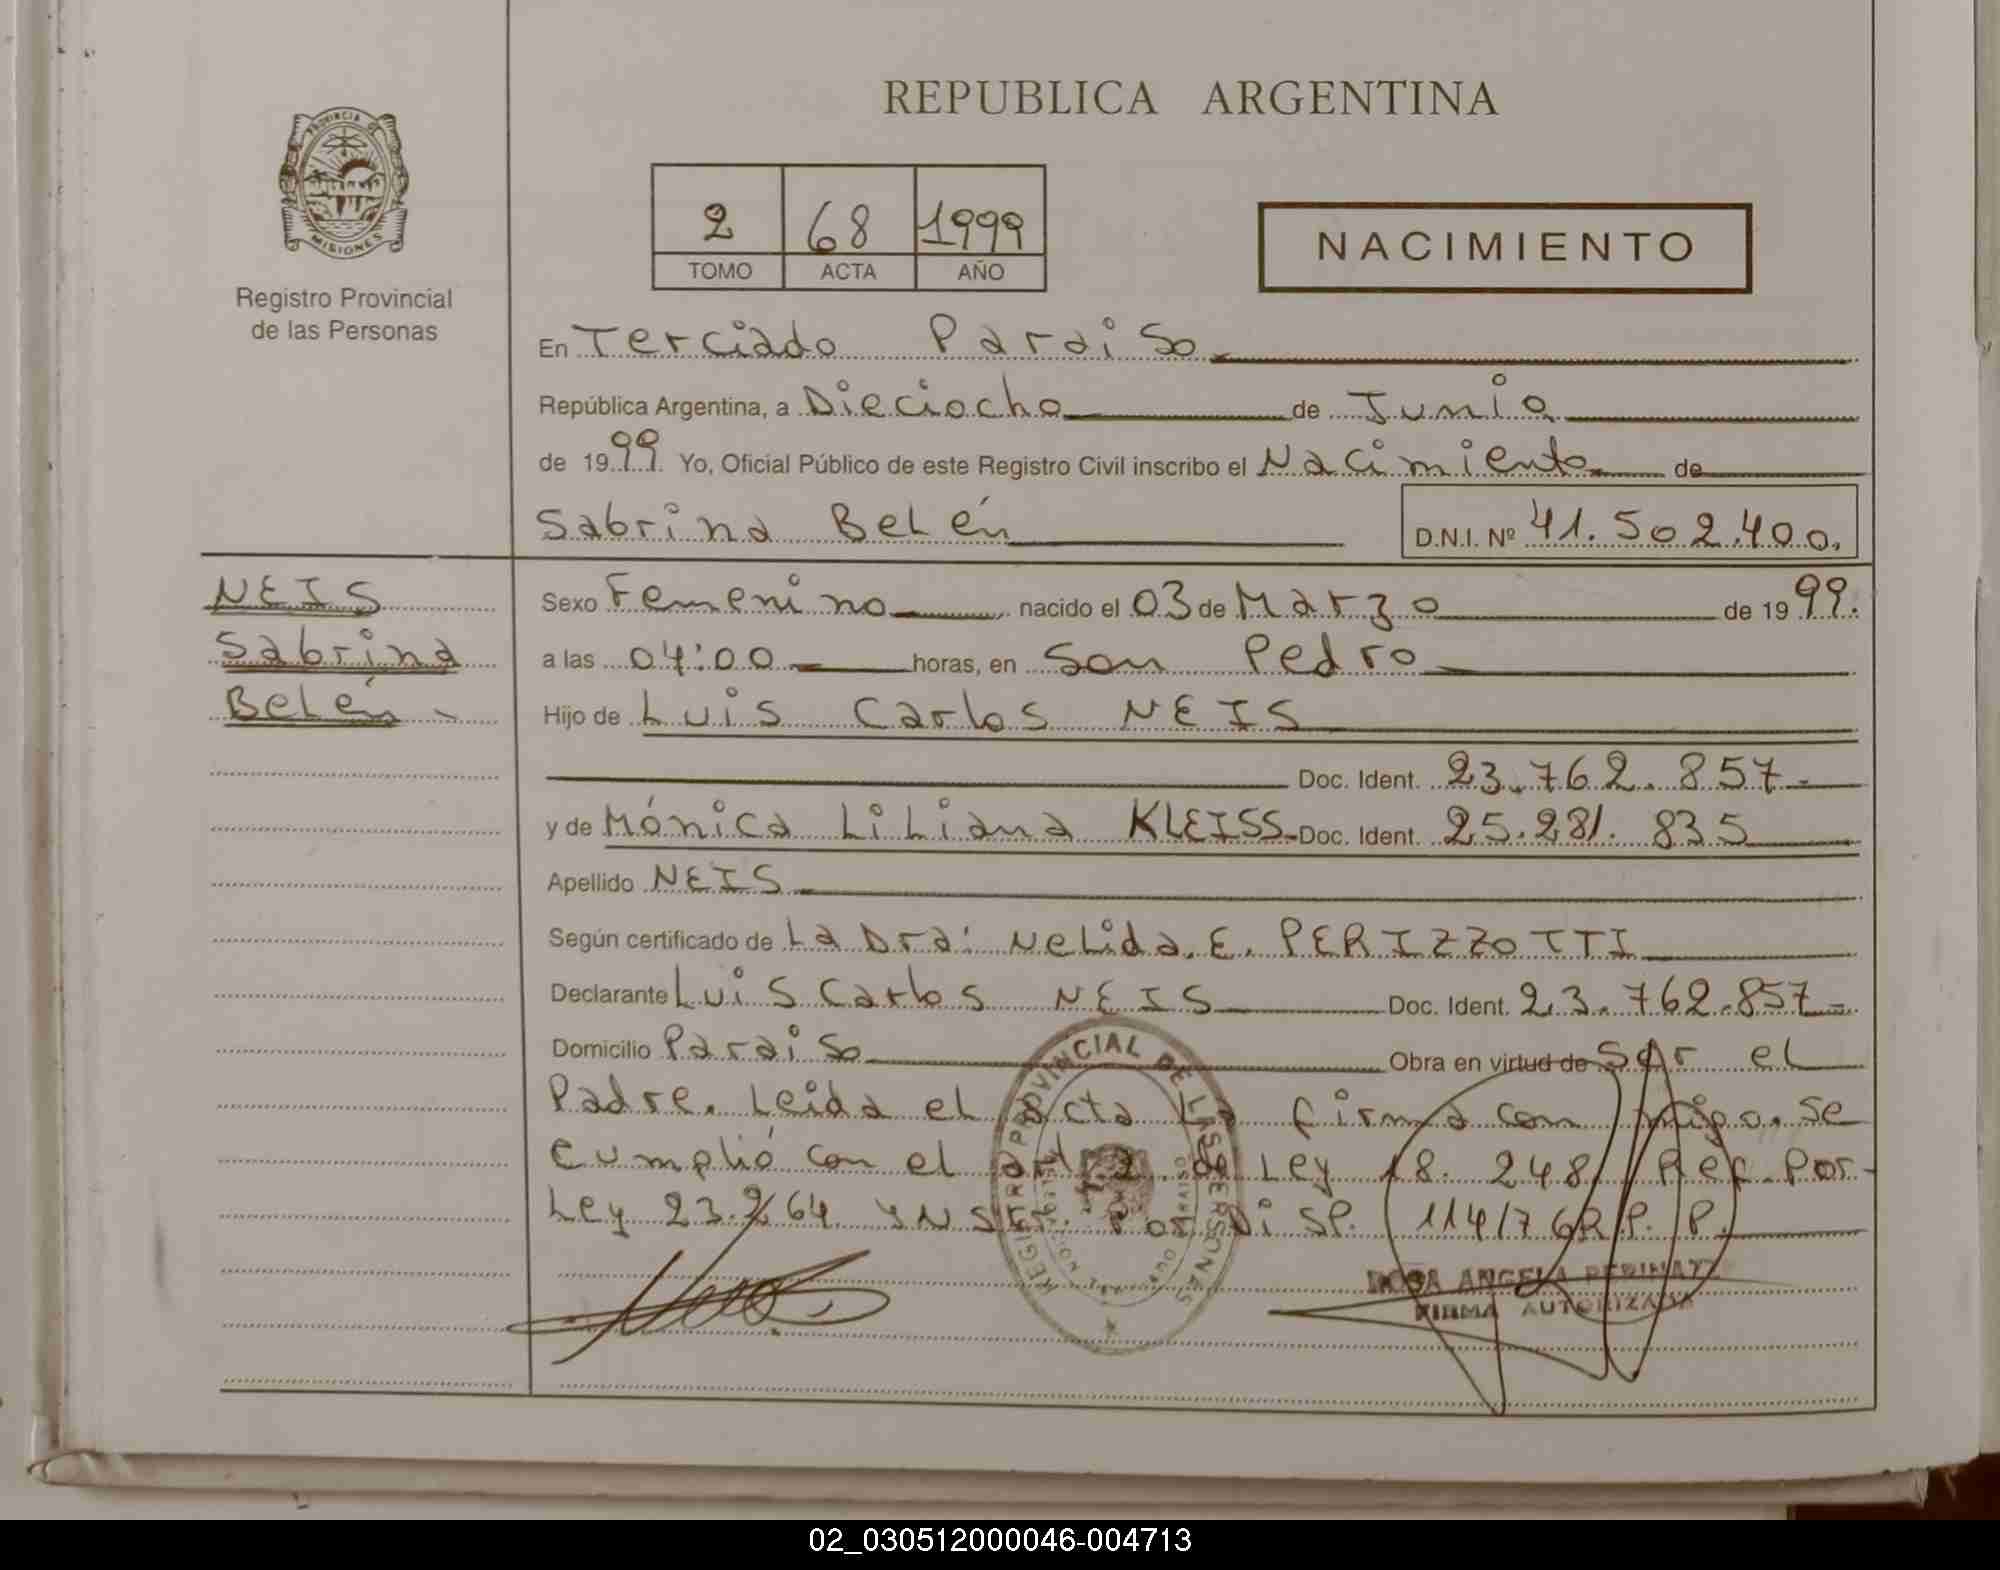 REPUBLICA ARGENTINA
PROVINCIA DE
MISIONES
Registro Provincial
de las Personas
2 68 1999
TOMO ACTA AÑO
NACIMIENTO
En Terciado Paraiso
República Argentina, a Dieciocho de Junio
de 1999. Yo, Oficial Público de este Registro Civil inscribo el Nacimiento de
Sabrina Belén D.N.I. Nº 41.502.400.
NEIS
Sabrina
Belén
Sexo Femenino nacido el 03 de Marzo de 1999.
a las 04:00 horas, en San Pedro
Hijo de Luis Carlos NEIS
Doc. Ident. 23.762.857-
y de Mónica Liliana KLEISS Doc. Ident. 25.281.835
Apellido NEIS
Según certificado de La Dra: Nelida.E. PERIZZOTTI
Declarante Luis Carlos NEIS Doc. Ident. 23.762.857-
Domicilio Paraiso Obra en virtud de Ser el
Padre. Leida el acta La firma con migo. Se
cumplió con el art 2 de Ley 18.248/ Ref. Por
Ley 23.264 YNSTR. Por DiSP. 114/76R.P.P.
REGISTRO PROVINCIAL DE LAS PERSONAS
ROSA ANGELA
FIRMA AUTORIZADA
02_030512000046-004713